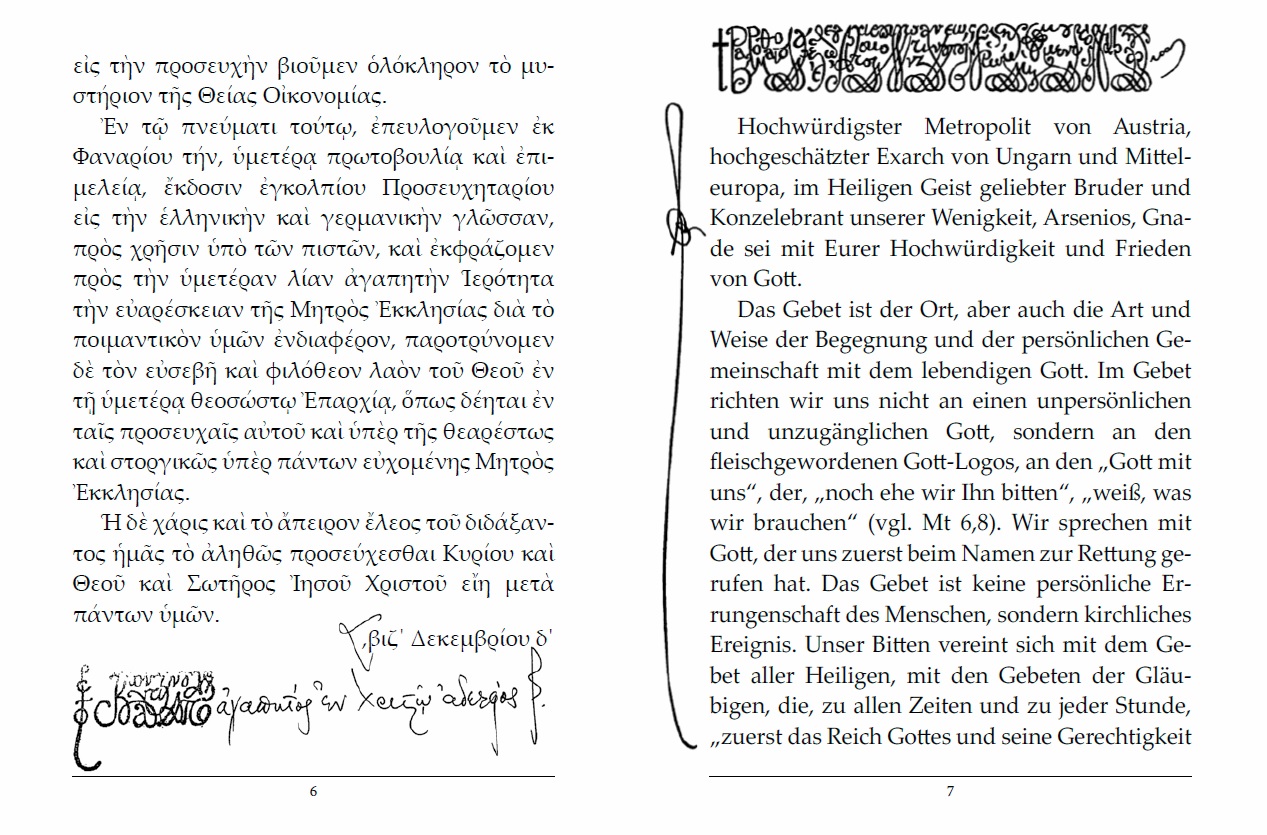 εἰς τὴν προσευχὴν βιοῦμεν ὁλόκληρον τὸ μυ-
στήριον τῆς Θείας Οἰκονομίας.
Ἐν τῷ πνεύματι τούτῳ, ἐπευλογοῦμεν ἐκ
Φαναρίου τήν, ὑμετέρᾳ πρωτοβουλίᾳ καὶ ἐπι-
μελείᾳ, ἔκδοσιν ἐγκολπίου Προσευχηταρίου
εἰς τὴν ἑλληνικὴν καὶ γερμανικὴν γλῶσσαν,
πρὸς χρῆσιν ὑπὸ τῶν πιστῶν, καὶ ἐκφράζομεν
πρὸς τὴν ὑμετέραν λίαν ἀγαπητὴν Ἱερότητα
τὴν εὐαρέσκειαν τῆς Μητρὸς Ἐκκλησίας διὰ τὸ
ποιμαντικὸν ὑμῶν ἐνδιαφέρον, παροτρύνομεν
δὲ τὸν εὐσεβῆ καὶ φιλόθεον λαὸν τοῦ Θεοῦ ἐν
τῇ ὑμετέρᾳ θεοσώστῳ Ἐπαρχίᾳ, ὅπως δέηται ἐν
ταῖς προσευχαῖς αὐτοῦ καὶ ὑπὲρ τῆς θεαρέστως
καὶ στοργικῶς ὑπὲρ πάντων εὐχομένης Μητρὸς
Ἐκκλησίας.
Ἡ δὲ χάρις καὶ τὸ ἄπειρον ἔλεος τοῦ διδάξαν-
τος ἡμᾶς τὸ ἀληθῶς προσεύχεσθαι Κυρίου καὶ
Θεοῦ καὶ Σωτῆρος Ἰησοῦ Χριστοῦ εἴη μετὰ
πάντων ὑμῶν.
͵βιζ΄ Δεκεμβρίου δ΄
ἀγαπητὸς ἐν Χριστῷ ἀδελφὸς
6
Hochwürdigster Metropolit von Austria,
hochgeschätzter Exarch von Ungarn und Mittel-
europa, im Heiligen Geist geliebter Bruder und
Konzelebrant unserer Wenigkeit, Arsenios, Gna-
de sei mit Eurer Hochwürdigkeit und Frieden
von Gott.
Das Gebet ist der Ort, aber auch die Art und
Weise der Begegnung und der persönlichen Ge-
meinschaft mit dem lebendigen Gott. Im Gebet
richten wir uns nicht an einen unpersönlichen
und unzugänglichen Gott, sondern an den
fleischgewordenen Gott-Logos, an den „Gott mit
uns“, der, „noch ehe wir Ihn bitten“, „weiß, was
wir brauchen“ (vgl. Mt 6,8). Wir sprechen mit
Gott, der uns zuerst beim Namen zur Rettung ge-
rufen hat. Das Gebet ist keine persönliche Er-
rungenschaft des Menschen, sondern kirchliches
Ereignis. Unser Bitten vereint sich mit dem Ge-
bet aller Heiligen, mit den Gebeten der Gläu-
bigen, die, zu allen Zeiten und zu jeder Stunde,
„zuerst das Reich Gottes und seine Gerechtigkeit
7